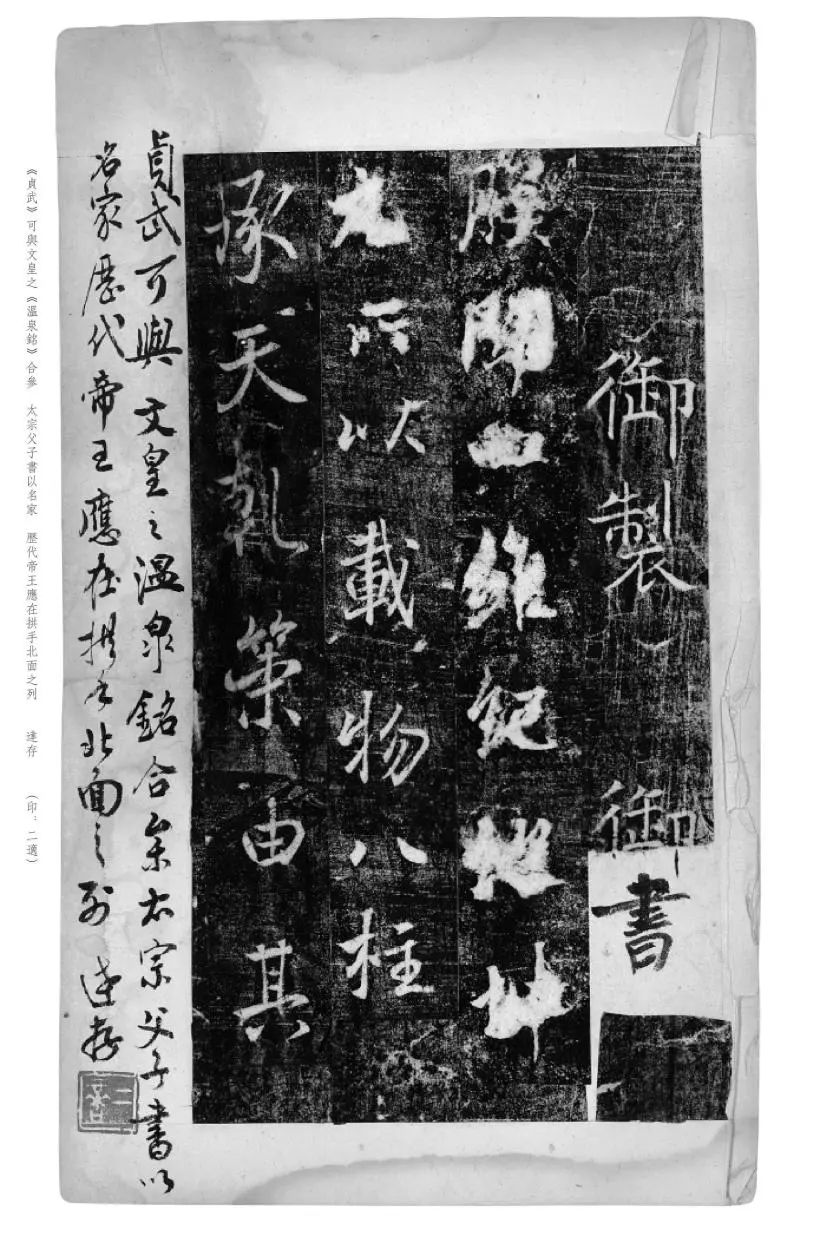 御製 御書
朕聞四維紀地坤
元所以載物八柱
承天乹策由其
貞武可與文皇之温泉銘合參太宗父子書以
名家歷代帝王應在拱手北面之列 達存
二適
《貞武》可與文皇之《溫泉銘》合參 太宗父子書以名家 歷代帝王應在拱手北面之列 達存 (印:二適)